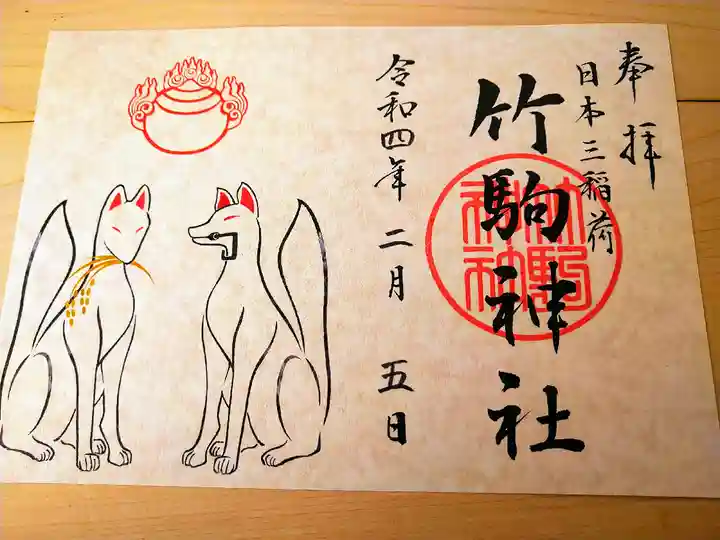 奉拝
日本三稲荷
竹駒神社
令和四年 二月 五日
竹駒
神社